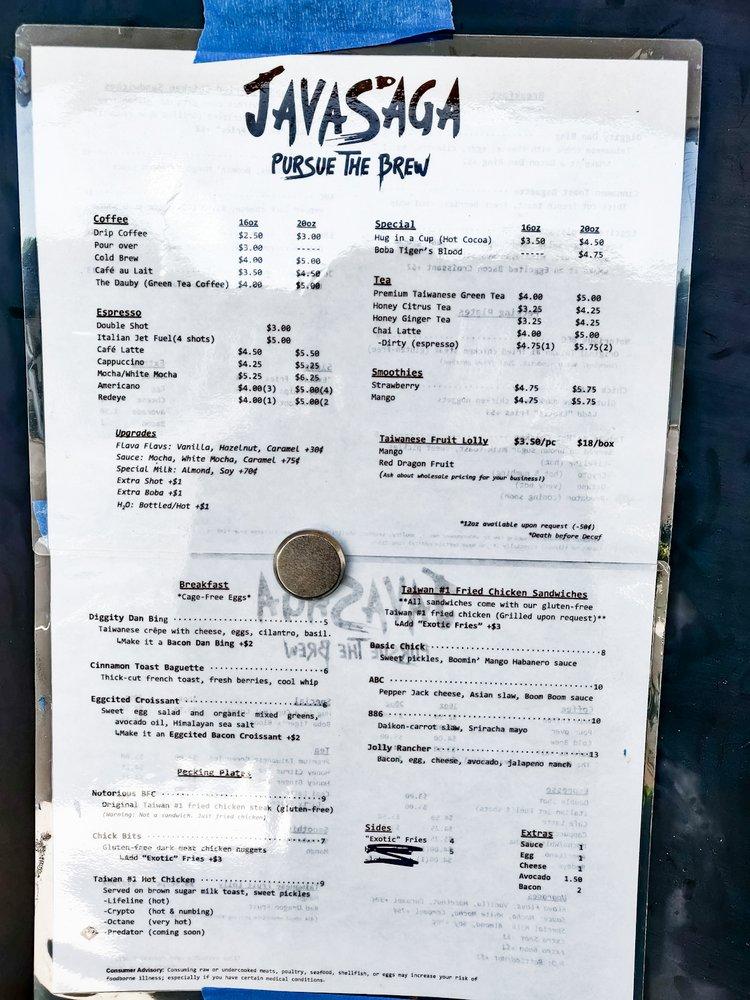 JAVASAGA
PURSUE THE BREW
Coffee 16oz 20oz
Drip Coffee $2.50 $3.00
Pour over $3.00 -----
Cold Brew $4.00 $5.00
Café au Lait $3.50 $4.50
The Dauby (Green Tea Coffee) $4.00 $5.00
Espresso
Double Shot $3.00
Italian Jet Fuel(4 shots) $5.00
Café Latte $4.50 $5.50
Cappuccino $4.25 $5.25
Mocha/White Mocha $5.25 $6.25
Americano $4.00(3) $5.00(4)
Redeye $4.00(1) $5.00(2
Upgrades
Flava Flavs: Vanilla, Hazelnut, Caramel +30¢
Sauce: Mocha, White Mocha, Caramel +75¢
Special Milk: Almond, Soy +70¢
Extra Shot +$1
Extra Boba +$1
H₂O: Bottled/Hot +$1
Special 16oz 20oz
Hug in a Cup (Hot Cocoa) $3.50 $4.50
Boba Tiger's Blood ----- $4.75
Tea
Premium Taiwanese Green Tea $4.00 $5.00
Honey Citrus Tea $3.25 $4.25
Honey Ginger Tea $3.25 $4.25
Chai Latte $4.00 $5.00
-Dirty (espresso) $4.75(1) $5.75(2)
Smoothies
Strawberry $4.75 $5.75
Mango $4.75 $5.75
Taiwanese Fruit Lolly $3.50/pc $18/box
Mango
Red Dragon Fruit
(Ask about wholesale pricing for your business!)
*12oz available upon request (-50¢)
*Death before Decaf
Breakfast
*Cage-Free Eggs*
Diggity Dan Bing 5
Taiwanese crêpe with cheese, eggs, cilantro, basil.
↳Make it a Bacon Dan Bing +$2
Cinnamon Toast Baguette 6
Thick-cut french toast, fresh berries, cool whip
Eggcited Croissant
Sweet egg salad and organic mixed greens,
avocado oil, Himalayan sea salt
↳Make it an Eggcited Bacon Croissant +$2
Pecking Plates
Notorious BFC 9
Original Taiwan #1 fried chicken steak (gluten-free)
(Warning: Not a sandwich. Just fried chicken)
Chick Bits 7
Gluten-free dark meat chicken nuggets
↳Add "Exotic" Fries +$3
Taiwan #1 Hot Chicken 9
Served on brown sugar milk toast, sweet pickles
-Lifeline (hot)
-Crypto (hot & numbing)
-Octane (very hot)
-Predator (coming soon)
Taiwan #1 Fried Chicken Sandwiches
**All sandwiches come with our gluten-free
Taiwan #1 fried chicken (Grilled upon request)**
↳Add "Exotic Fries" +$3
Basic Chick 8
Sweet pickles, Boomin' Mango Habanero sauce
ABC 10
Pepper Jack cheese, Asian slaw, Boom Boom sauce
886 10
Daikon-carrot slaw, Sriracha mayo
Jolly Rancher 13
Bacon, egg, cheese, avocado, jalapeno ranch
Sides
"Exotic" Fries 4
Extras
Sauce 1
Egg 1
Cheese 1
Avocado 1.50
Bacon 2
Consumer Advisory: Consuming raw or undercooked meats, poultry, seafood, shellfish, or eggs may increase your risk of
foodborne illness; especially if you have certain medical conditions.